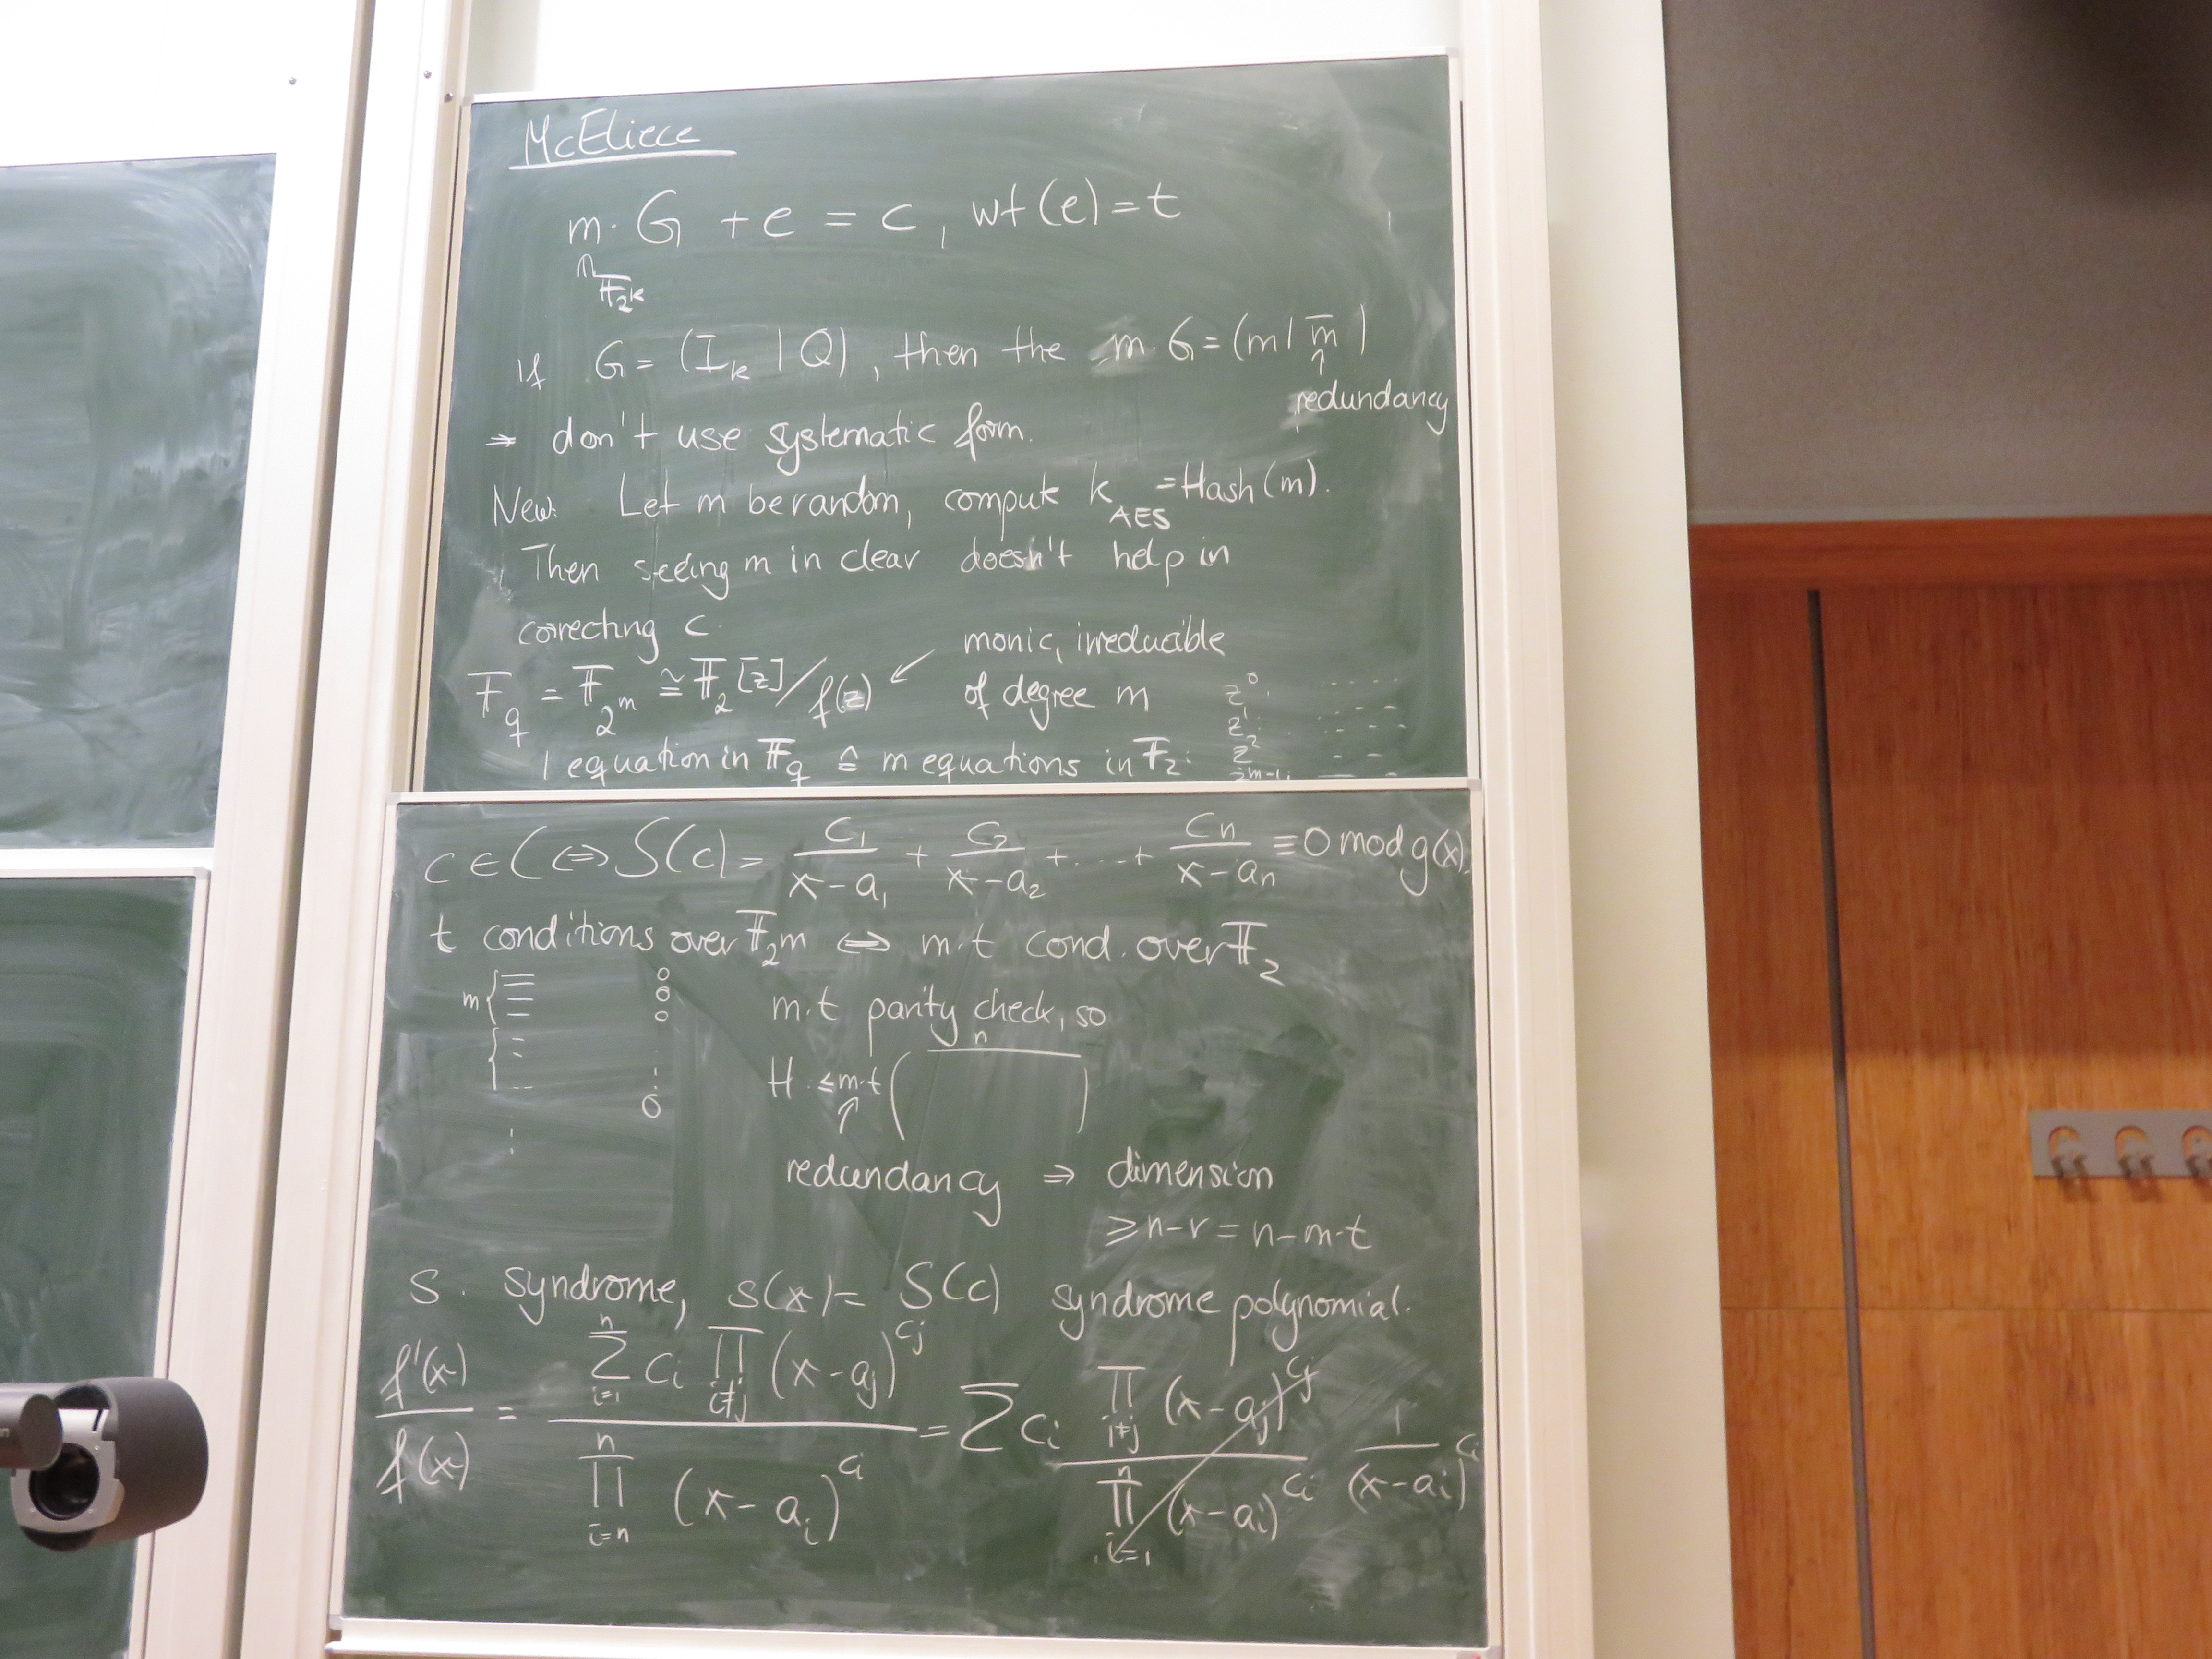 McEliece
m · G + e = c , wt(e) = t
∈ 𝔽₂k
If G = (I_k | Q) , then the m · G = (m | m̄ )
↑
redundancy
⇒ don't use systematic form.
New: Let m be random, compute k_AES = Hash(m).
Then seeing m in clear doesn't help in
correcting c.
monic, irreducible
𝔽_q = 𝔽_2^m ≅ 𝔽_2[z]/f(z) ↙ of degree m
z⁰
z¹
z²
z^{m-1}
1 equation in 𝔽_q ≙ m equations in 𝔽_2.
c ∈ C ⇔ S(c) = c_1/(x-a_1) + c_2/(x-a_2) + .... + c_n/(x-a_n) ≡ 0 mod g(x).
t conditions over 𝔽_2^m ⇔ m·t cond. over 𝔽_2
m { 0 0 0 m·t parity check, so
n
{ 0 H ≤ m·t ( )
↑
redundancy ⇒ dimension
≥ n-r = n-m·t
S. syndrome, s(x) = S(c) syndrome polynomial.
f'(x)/f(x) = Σ_{i=1}^{n} c_i ∏_{i≠j} (x-a_j)^{c_j} / ∏_{i=n}^{n} (x-a_i)^{c_i} = Σ c_i ∏_{i≠j} (x-a_j)^{c_j} / ∏_{i=1}^{n} (x-a_i)^{c_i} 1/(x-a_i)^{c_i}